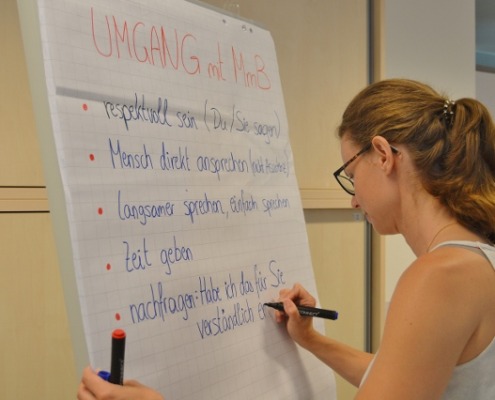 UMGANG mt MmB
• respektvoll sein (Du/Sie sagen)
• Mensch direkt ansprechen (nicht Assistenz)
• langsamer sprechen, Einfach sprechen
• Zeit geben
• nachfragen: Habe ich das für Sie
verständlich e